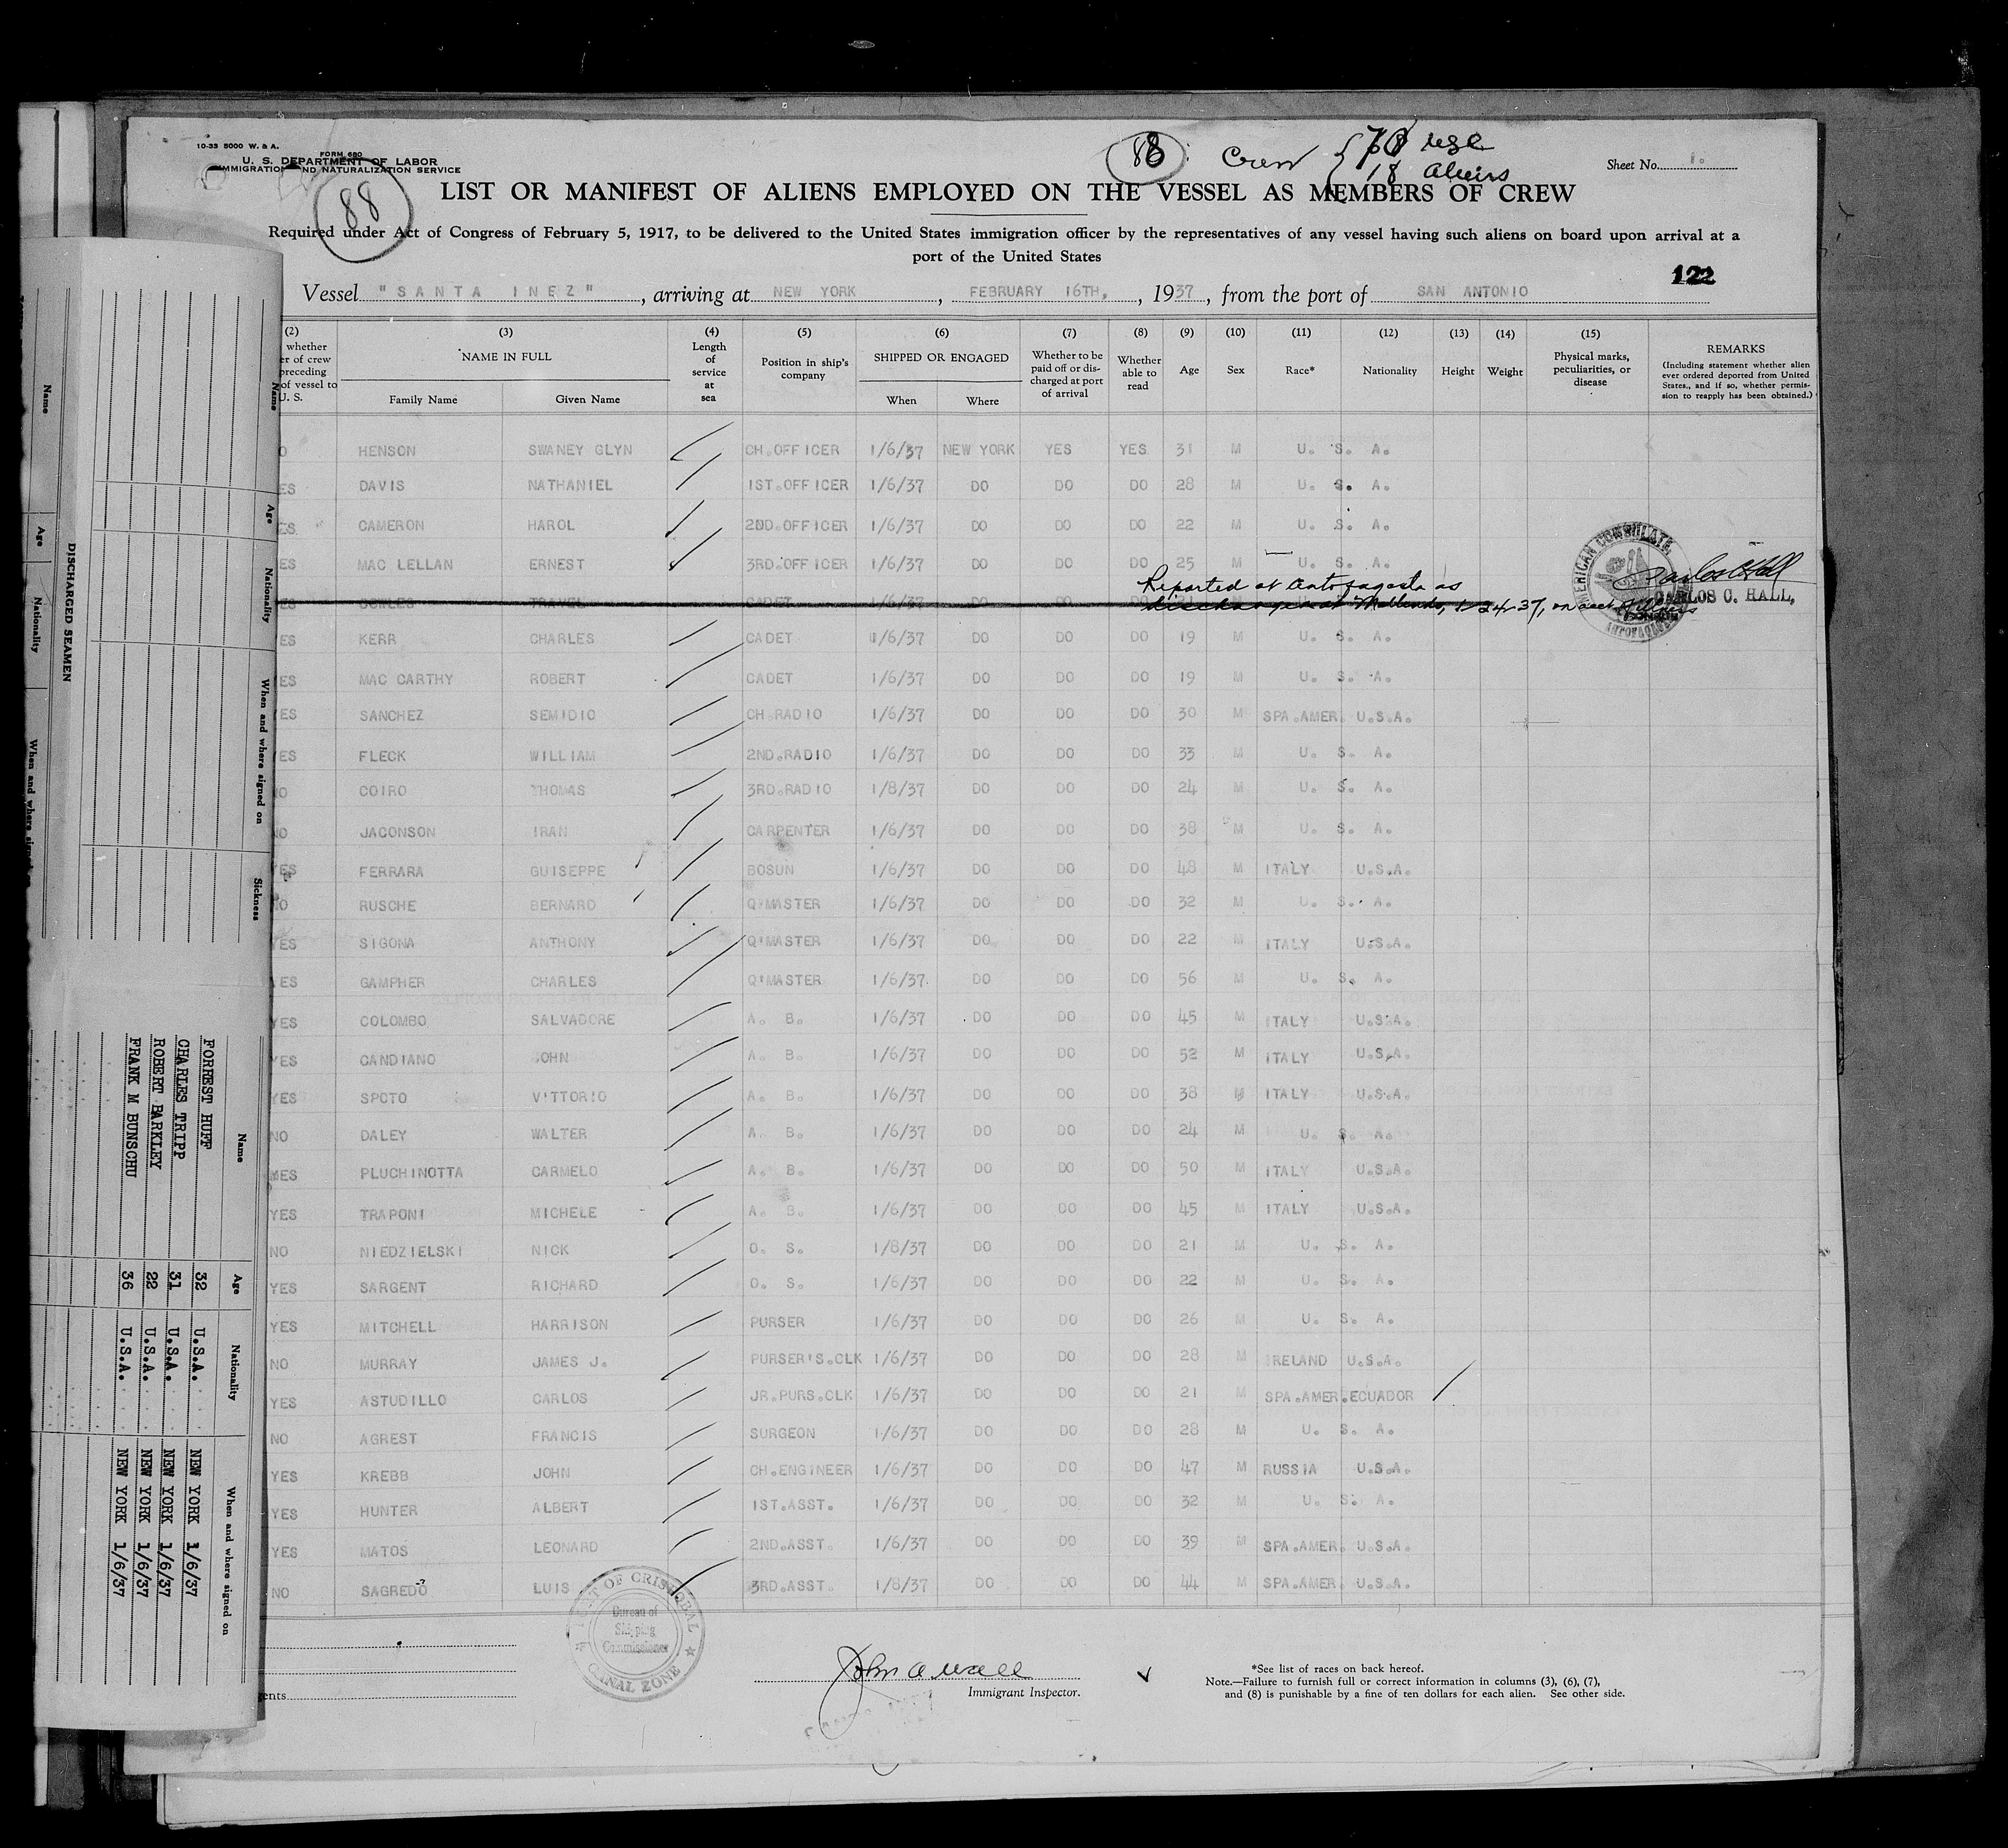 10-33 5000 W. & A.
FORM 680
U. S. DEPARTMENT OF LABOR
IMMIGRATION AND NATURALIZATION SERVICE
88
88 Crew { 70 USC
18 Aliens
Sheet No. 1.
LIST OR MANIFEST OF ALIENS EMPLOYED ON THE VESSEL AS MEMBERS OF CREW
Required under Act of Congress of February 5, 1917, to be delivered to the United States immigration officer by the representatives of any vessel having such aliens on board upon arrival at a
port of the United States
122
Vessel "SANTA INEZ", arriving at NEW YORK, FEBRUARY 16TH, 1937, from the port of SAN ANTONIO
(2) (3) (4) (5) (6) (7) (8) (9) (10) (11) (12) (13) (14) (15)
whether
er of crew
preceding
of vessel to
U. S.
NAME IN FULL
Family Name Given Name
Length
of
service
at
sea
Position in ship's
company
SHIPPED OR ENGAGED
When Where
Whether to be
paid off or dis-
charged at port
of arrival
Whether
able to
read
Age Sex Race* Nationality Height Weight
Physical marks,
peculiarities, or
disease
REMARKS
(Including statement whether alien
ever ordered deported from United
States, and if so, whether permis-
sion to reapply has been obtained.)
O HENSON SWANEY GLYN CH.OFFICER 1/6/37 NEW YORK YES YES 31 M U. S. A.
ES DAVIS NATHANIEL 1ST.OFFICER 1/6/37 DO DO DO 28 M U. S. A.
ES CAMERON HAROL 2ND.OFFICER 1/6/37 DO DO DO 22 M U. S. A.
ES MAC LELLAN ERNEST 3RD.OFFICER 1/6/37 DO DO DO 25 M U. S. A.
Reported at Antofagasta as
ES COWLES TRAVEL CADET 1/6/37 DO DO discharged at Mollendo, 1-24-37, on acct illness
AMERICAN CONSULATE
Carlos C Hall
CARLOS C. HALL,
ES KERR CHARLES CADET 1/6/37 DO DO DO 19 M U. S. A.
ES MAC CARTHY ROBERT CADET 1/6/37 DO DO DO 19 M U. S. A.
YES SANCHEZ SEMIDIO CH.RADIO 1/6/37 DO DO DO 30 M SPA.AMER. U.S.A.
YES FLECK WILLIAM 2ND.RADIO 1/6/37 DO DO DO 33 M U. S. A.
NO COIRO THOMAS 3RD.RADIO 1/8/37 DO DO DO 24 M U. S. A.
NO JACONSON IRAN CARPENTER 1/6/37 DO DO DO 38 M U. S. A.
YES FERRARA GUISEPPE BOSUN 1/6/37 DO DO DO 48 M ITALY U.S.A.
NO RUSCHE BERNARD Q'MASTER 1/6/37 DO DO DO 32 M U. S. A.
YES SIGONA ANTHONY Q'MASTER 1/6/37 DO DO DO 22 M ITALY U.S.A.
YES GAMPHER CHARLES Q'MASTER 1/6/37 DO DO DO 56 M U. S. A.
YES COLOMBO SALVADORE A. B. 1/6/37 DO DO DO 45 M ITALY U.S.A.
YES CANDIANO JOHN A. B. 1/6/37 DO DO DO 52 M ITALY U.S.A.
YES SPOTO VITTORIO A. B. 1/6/37 DO DO DO 38 M ITALY U.S.A.
NO DALEY WALTER A. B. 1/6/37 DO DO DO 24 M U. S. A.
YES PLUCHINOTTA CARMELO A. B. 1/6/37 DO DO DO 50 M ITALY U.S.A.
YES TRAPONI MICHELE A. B. 1/6/37 DO DO DO 45 M ITALY U.S.A.
NO NIEDZIELSKI NICK O. S. 1/8/37 DO DO DO 21 M U. S. A.
YES SARGENT RICHARD O. S. 1/6/37 DO DO DO 22 M U. S. A.
YES MITCHELL HARRISON PURSER 1/6/37 DO DO DO 26 M U. S. A.
NO MURRAY JAMES J. PURSER'S.CLK 1/6/37 DO DO DO 28 M IRELAND U.S.A.
YES ASTUDILLO CARLOS JR.PURS.CLK 1/6/37 DO DO DO 21 M SPA.AMER.ECUADOR
NO AGREST FRANCIS SURGEON 1/6/37 DO DO DO 28 M U. S. A.
YES KREBB JOHN CH.ENGINEER 1/6/37 DO DO DO 47 M RUSSIA U.S.A.
YES HUNTER ALBERT 1ST.ASST. 1/6/37 DO DO DO 32 M U. S. A.
YES MATOS LEONARD 2ND.ASST. 1/6/37 DO DO DO 39 M SPA.AMER. U.S.A.
NO SAGREDO LUIS 3RD.ASST. 1/8/37 DO DO DO 44 M SPA.AMER. U.S.A.
PORT OF CRISTOBAL
Bureau of
Shipping
Commissioner
CANAL ZONE
ents
John A Wall
Immigrant Inspector.
*See list of races on back hereof.
Note.—Failure to furnish full or correct information in columns (3), (6), (7),
and (8) is punishable by a fine of ten dollars for each alien. See other side.
Name Age Nationality When and where signed on
DISCHARGED SEAMEN
Name Age Nationality When and where signed on Sickness
Name Age Nationality When and where signed on
FORREST HUFF 32 U.S.A. NEW YORK 1/6/37
CHARLES TRIPP 31 U.S.A. NEW YORK 1/6/37
ROBERT BARKLEY 22 U.S.A. NEW YORK 1/6/37
FRANK M BUNSCHU 36 U.S.A. NEW YORK 1/6/37